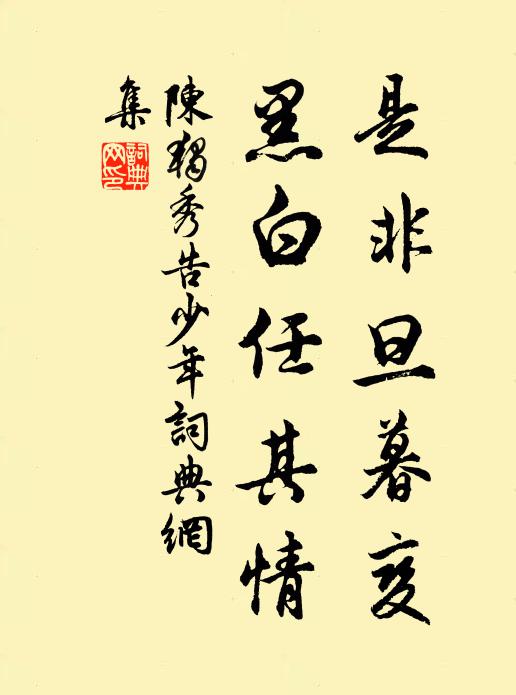 是非旦暮变
黑白任其情
陳獨秀告少年詞典網
集
詞典
网印